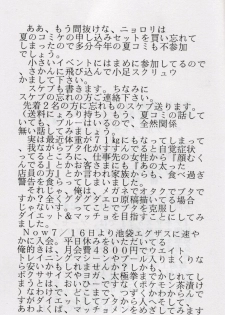 ああ、もう間抜けな、ニョロリは
夏のコミケの申し込みセットを買い忘れて
しまったので多分今年の夏コミも不参加
でしょう。
小さいイベントにはまめに参加してるので
さかんに飛び込んで小足スクリュウ
かまして下さい。
スケブも書きます。ちなみに
スケブの忘れの方ご連絡下さい。
先着2名の方に忘れものスケブ送ります。
(送料にょろり持ち)もう、夏コミの話して
いても、ブルーはいるので、全然関係
無い話してみましょう。
実は最近体重が71㎏になってしまって
、我ながらブタ化がすすんでると自覚症状
んってるところに、仕事先の女性から『顔むく
んでるよ』とか、お客さんにも『あの太った
店員の方』とか言われ家族からも、食べ過ぎ
警告を食らってしまいました。
それでなくても、俺は、メガネでオタクでブタで
すから、全くグダグダエロ原稿描いてる場合
じゃないっす。でもってブタを克服し
ダイエット＆マッチョを目指すことにしてみ
ました。
Now7/16日より池袋エグザスに速や
かに入会。平日休みをいただいている
ので、平日、月会費4200円でウエイト
トレイニングマシーンやプール入りまくりな
ら安いかもしれませんしかも?
ボクササイズやヨガ、太極拳までかじれてし
まうとは、おいひーですな(ポケモン茶漬け
)なわけで、どこまで、つずくかわからんで
すがしばらくハードにダイエットしてみたりし
ちゃって、あわよくば、マッチョメンをめざしてみます